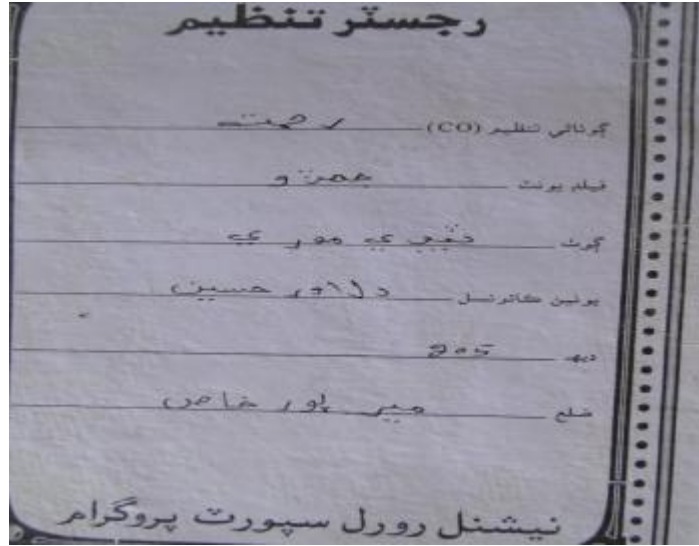 رجسٽر تنظيم
ڳوٺاڻي تنظيم (CO) رحمت
فيلڊ يونٽ جھڙو
ڳوٺ موري
يونين ڪائونسل دلاور حسين
ديهه 205
ضلع مير پور خاص
نيشنل رورل سپورٽ پروگرام